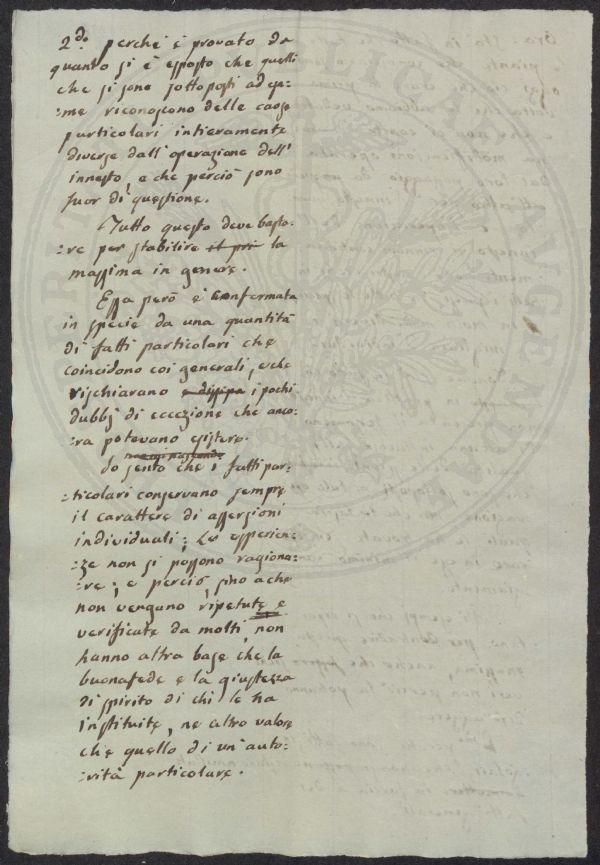 2.do perchè è provato da
quanto si è esposto che quelli
che si sono sottoposti ad esa-
:me riconoscono delle cause
particolari intieramente
diverse dall'operazione dell'
innesto, e che perciò sono
fuor di questione.
Tutto questo deve basta:
:re per stabilire la
massima in genere.
Essa però è confermata
in specie da una quantità
di fatti particolari che
coincidono coi generali, e che
rischiarano e dissipa i pochi
dubbj di eccezione che anco:
:ra potevano esistere.
Io sento che i fatti par-
:ticolari conservano sempre
il carattere di asserzioni
individuali; Le esperien:
:ze non si possono ragiona:
:re; e perciò, sino a che
non vengano ripetute e
verificate da molti, non
hanno altra base che la
buonafede e la giustezza
di spirito di chi le ha
instituite, ne altro valore
che quello di un'auto:
:rità particolare.